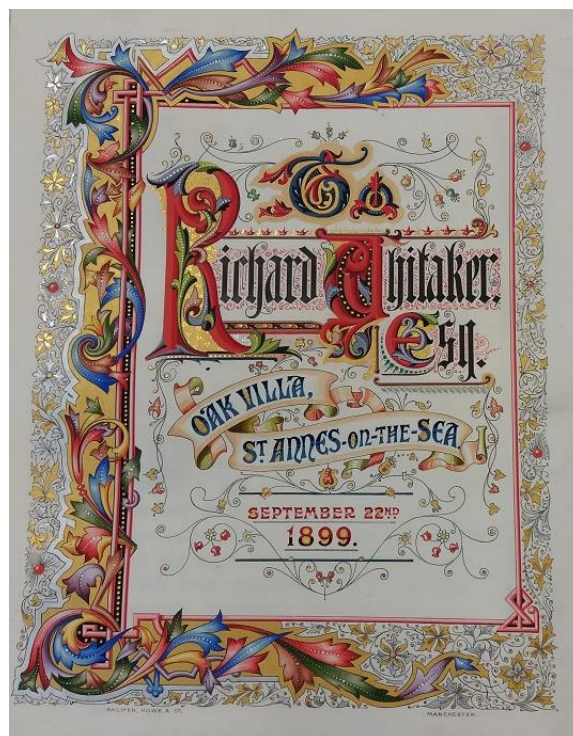 To
Richard Whitaker.
Esq.
OAK VILLA,
ST ANNES-ON-THE-SEA,
SEPTEMBER 22ND
1899.
PALMER, HOWE & CO. MANCHESTER.